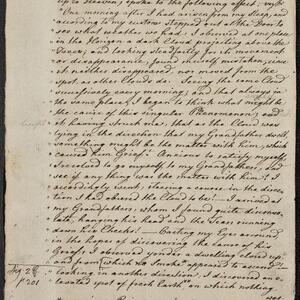 up to Heaven spoke to the following effect; "My
"One morning after I had arisen from my sleep, and
according to my custom stepped out at the Door to
see what weather we had: I observed at one place
in the Horizon a dark Cloud projecting above the
Trees, and looking steadfastly for its movement
or disappearance, found myself mistaken, since
it neither disappeared, nor moved from the
spot as other Clouds do. Seeing the same Cloud
successively every morning; and that always in
the same place, I began to think what might be
the cause of this singular Phenomenon; and
it having struck me, that as the Cloud was
lying in the direction that my Grandfather dwelt,
something might be the matter with him, which
caused him Grief. Anxious to satisfy myself,
I resolved to go to my Grandfather, and
see if any thing was the matter with him; I
accordingly went, steering a course in the direc-
tion I had observed the Cloud to be: I arrived at
my Grandfathers, whom I found quite disconso-
late, hanging his head and the Tears running
down his Cheeks! Casting my Eyes around
in the hopes of discovering the cause of his
Grief, I observed yonder a dwelling closed up,
and from which no Smoke appeared to ascend
Looking in another direction, I discovered an
elevated spot of fresh Earth on which nothing
p. 201